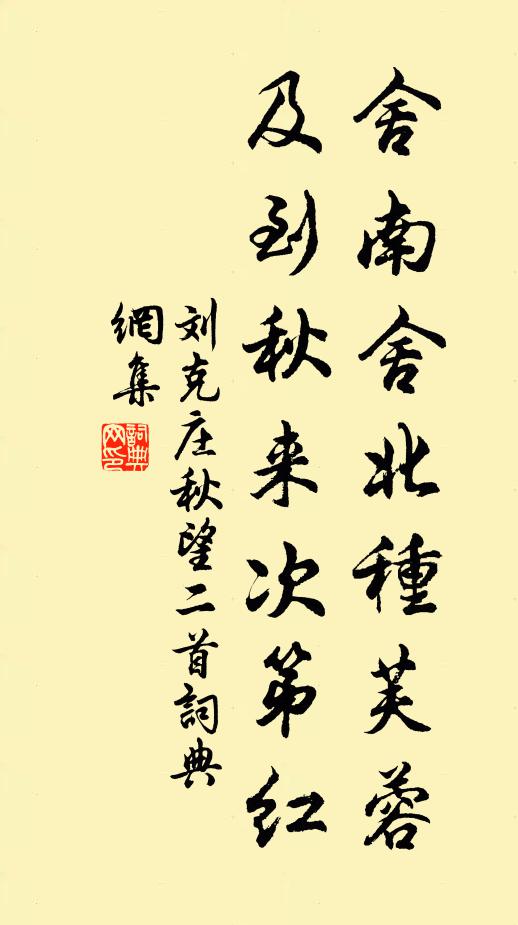 舍南舍北種芙蓉
及到秋来次第红
刘克庄秋望二首詞典
網集
詞典网印